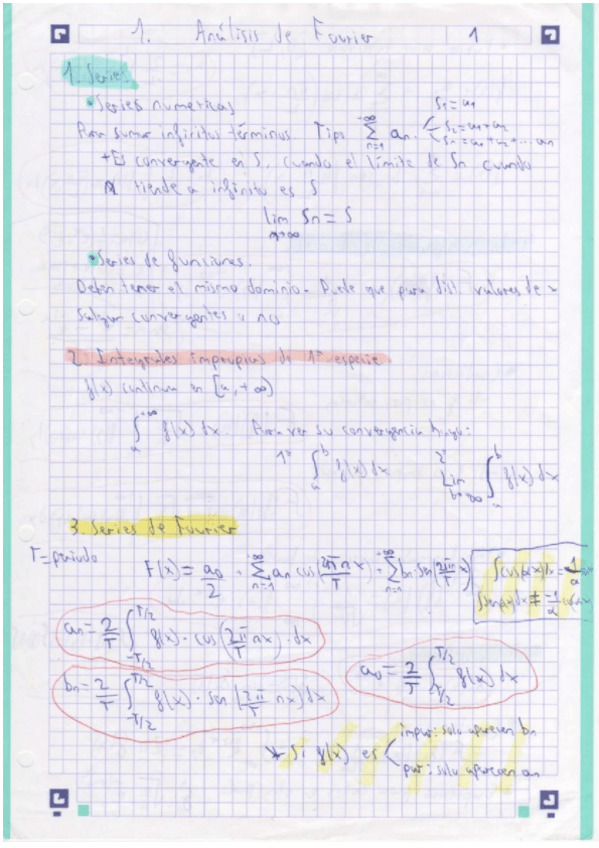 1. Análisis de Fourier 1
1. Series
• Series numericas
Para sumar infinitos términos. Tipo \sum_{n=1}^{+\infty} a_n. S_1 = a_1
S_2 = a_1 + a_2
S_n = a_1 + a_2 + ... a_n
+ Es convergente en S, cuando el límite de Sn cuando
N tiende a infinito es S
lim Sn = S
n→∞
• Series de funciones.
Deben tener el mismo dominio. Puede que para dist. valores de x
Salgan convergentes o no
2. Integrales impropias de 1ª especie.
f(x) continua en [a, +∞)
\int_a^{+\infty} f(x) dx. Para ver su convergencia hago:
1º \int_a^b f(x) dx 2º Lim_{b→∞} \int_a^b f(x) dx
3. Series de Fourier
T = periodo
F(x) = \frac{a_0}{2} + \sum_{n=1}^{+\infty} a_n cos(\frac{2π n}{T} x) + \sum_{n=1}^{+\infty} b_n sen(\frac{2πn}{T} x)
a_n = \frac{2}{T} \int_{-T/2}^{T/2} f(x) · cos(\frac{2π}{T} nx) · dx
a_0 = \frac{2}{T} \int_{-T/2}^{T/2} f(x) dx
b_n = \frac{2}{T} \int_{-T/2}^{T/2} f(x) · sen(\frac{2π}{T} nx) dx
* Si f(x) es
impar: solo aparecen bn
par: solo aparecen an